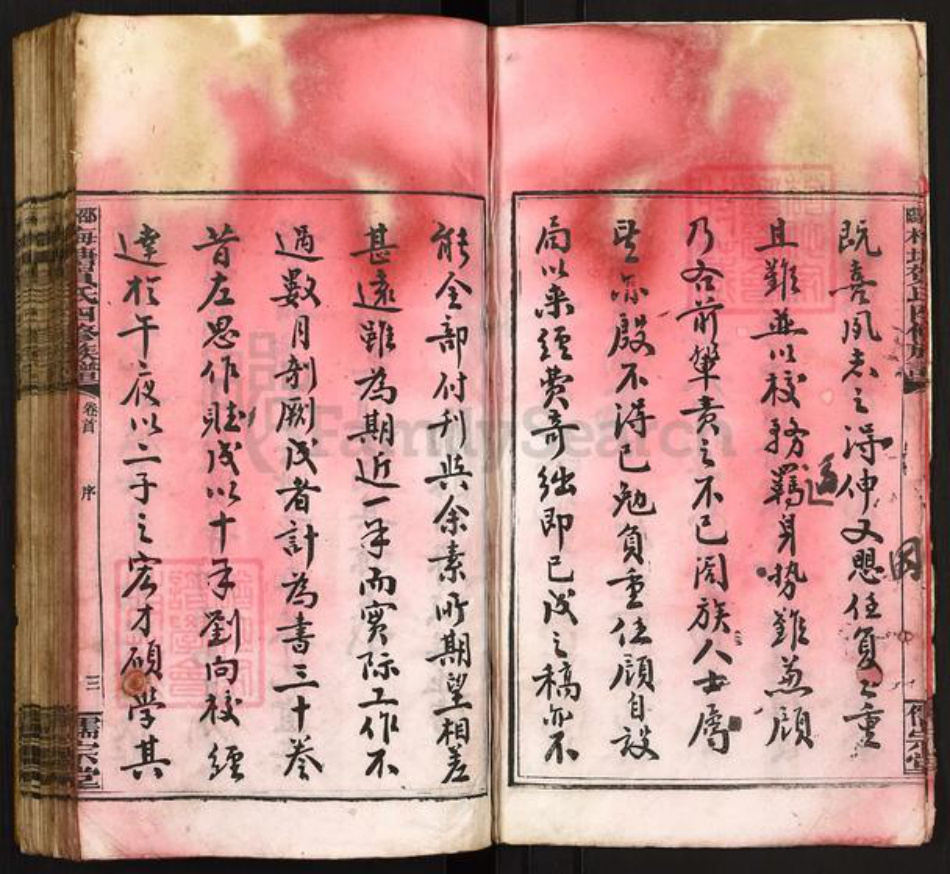 既喜夙志之得伸又思任負之重
因
且難並以校務羈身勢難兼顧
適
乃合前輩責之不已闔族人士屬
望亦殷不得已勉負重任顧自設
局以來經費奇絀即已成之稿亦不
能全部付刊與余素所期望相差
甚遠雖為期近一年而實際工作不
過數月剞劂成者計為書三十卷
昔左思作賦成以十年劉向校經
達於午夜以二子之宏才碩學其
氏四修族譜
卷首
序
三
儒宗堂
FamilySearch